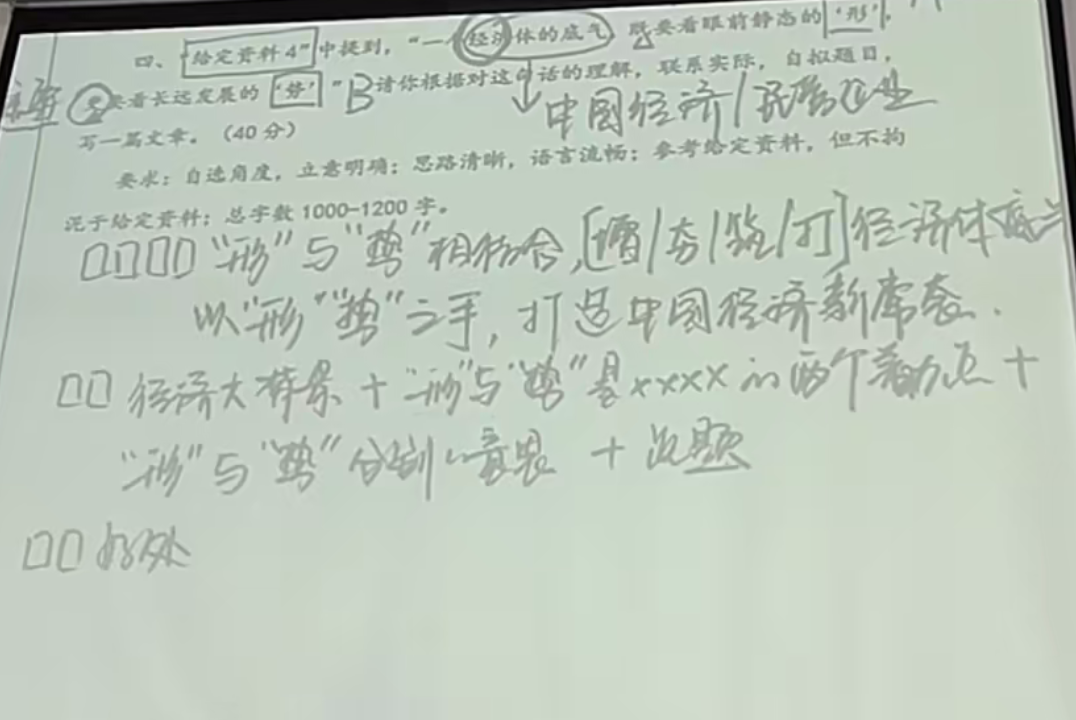 四、“给定资料4”中提到，“一个经济体的底气，既要看眼前静态的‘形’，
更要看长远发展的‘势’”请你根据对这句话的理解，联系实际，自拟题目，
B
写一篇文章。（40分）
中国经济/民营企业
要求：自选角度，立意明确；思路清晰，语言流畅；参考给定资料，但不拘
泥于给定资料；总字数1000-1200字。
“形”与“势”相结合，[增/夯/筑/打]经济体底气
以“形”“势”之手，打造中国经济新常态.
经济大背景+“形”与“势”是xxxx的两个着力点+
“形”与“势”分别的意思+点题
好处